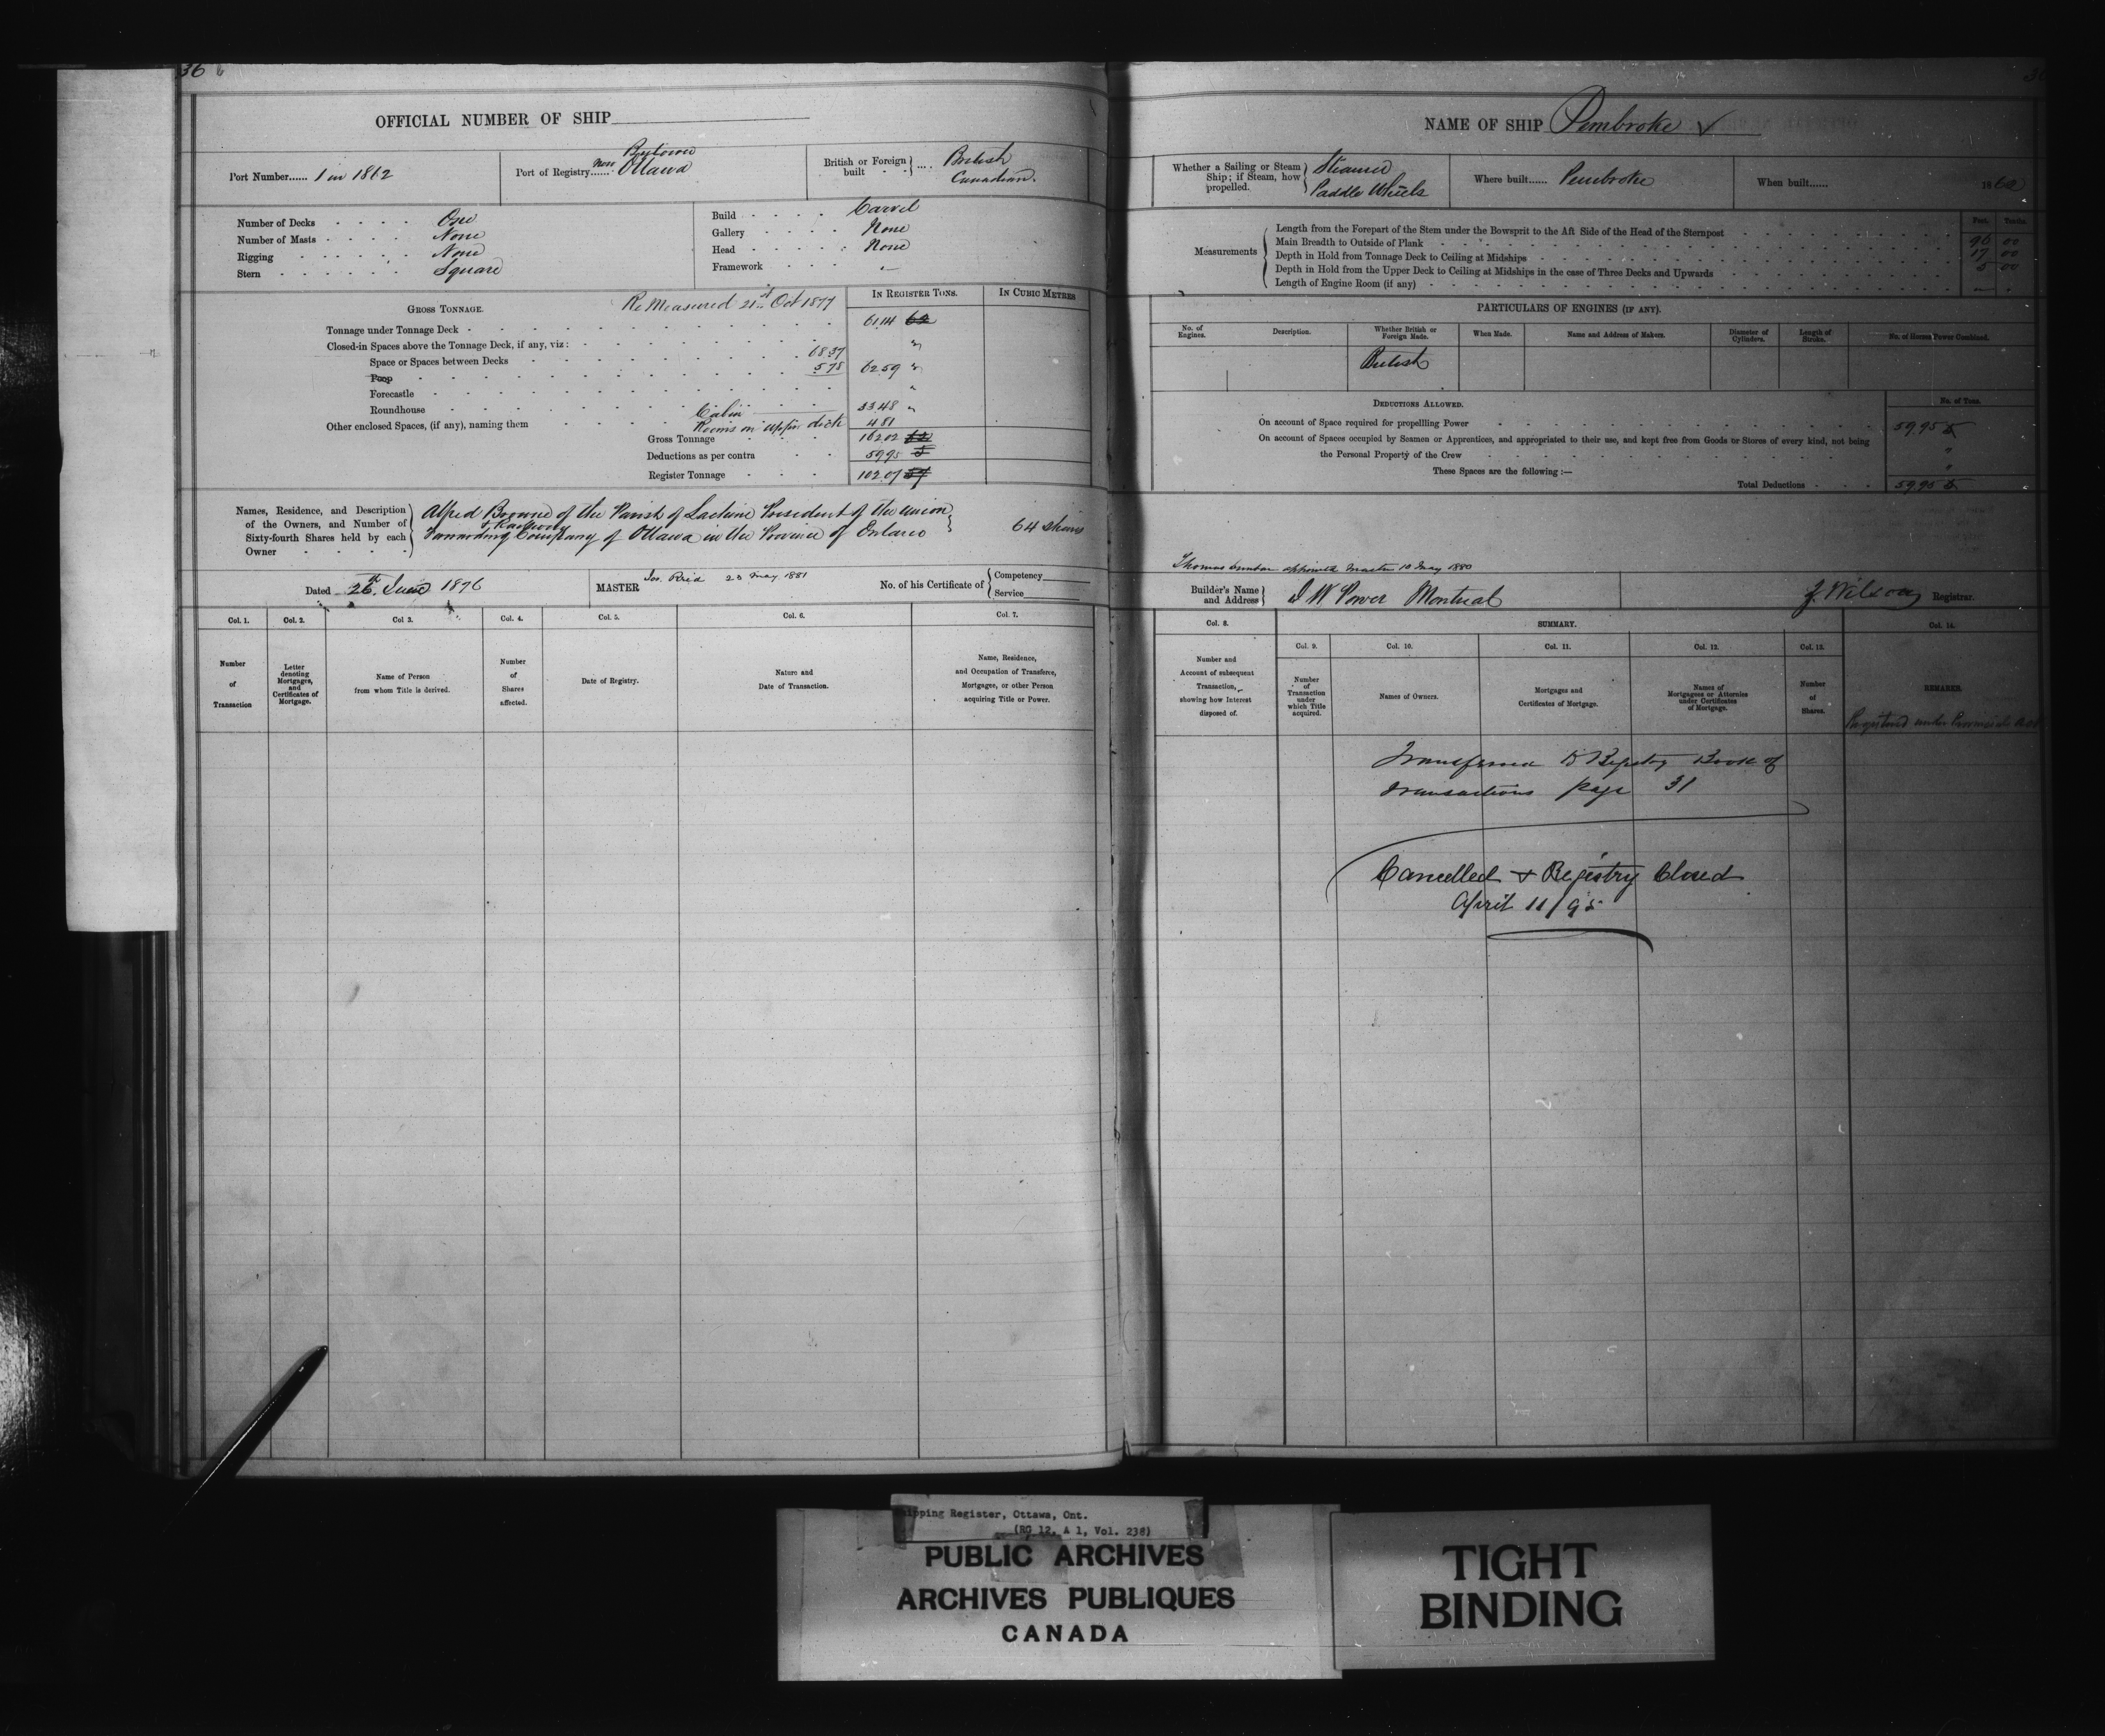 36
OFFICIAL NUMBER OF SHIP
Port Number...... 1 in 1862
Port of Registry...... Bytown
Now Ottawa
British or Foreign built .... British
Canadian.
Number of Decks One
Number of Masts None
Rigging None
Stern Square
Build Carvel
Gallery None
Head None
Framework —
GROSS TONNAGE.
Re Measured 21st Oct 1877
IN REGISTER TONS.
IN CUBIC METRES
Tonnage under Tonnage Deck 61.14 62
Closed-in Spaces above the Tonnage Deck, if any, viz: "
Space or Spaces between Decks 68.37
Poop 5.78 62.59 "
Forecastle "
Roundhouse Cabin 33.48 "
Other enclosed Spaces, (if any), naming them Rooms on upper deck 4.81
Gross Tonnage 162.02 62
Deductions as per contra 59.95 5
Register Tonnage 102.07 57
Names, Residence, and Description of the Owners, and Number of Sixty-fourth Shares held by each Owner
Alfred Browne of the Parish of Lachine President of the Union
Forwarding & Railway Company of Ottawa in the Province of Ontario
64 shares
Dated 26th June 1876
MASTER Jos. Reid 23 May 1881
No. of his Certificate of Competency
Service
Col. 1. Col. 2. Col 3. Col. 4. Col. 5. Col. 6. Col. 7.
Number of Transaction
Letter denoting Mortgages, and Certificates of Mortgage.
Name of Person from whom Title is derived.
Number of Shares affected.
Date of Registry.
Nature and Date of Transaction.
Name, Residence, and Occupation of Transferee, Mortgagee, or other Person acquiring Title or Power.
NAME OF SHIP Pembroke
Whether a Sailing or Steam Ship; if Steam, how propelled. Steamer
Paddle Wheels
Where built...... Pembroke
When built...... 1862
Measurements
Feet. Tenths.
Length from the Forepart of the Stem under the Bowsprit to the Aft Side of the Head of the Sternpost 96 00
Main Breadth to Outside of Plank 17 00
Depth in Hold from Tonnage Deck to Ceiling at Midships 5 00
Depth in Hold from the Upper Deck to Ceiling at Midships in the case of Three Decks and Upwards
Length of Engine Room (if any)
PARTICULARS OF ENGINES (IF ANY).
No. of Engines.
Description.
Whether British or Foreign Made.
When Made.
Name and Address of Makers.
Diameter of Cylinders.
Length of Stroke.
No. of Horses Power Combined.
British
DEDUCTIONS ALLOWED.
No. of Tons.
On account of Space required for propelling Power 59.95 5
On account of Spaces occupied by Seamen or Apprentices, and appropriated to their use, and kept free from Goods or Stores of every kind, not being
the Personal Property of the Crew "
These Spaces are the following :— "
Total Deductions 59.95 5
Thomas appointed Master 10 May 1880
Builder's Name and Address
W Power Montreal
Z. Wilson Registrar.
Col. 8.
SUMMARY.
Col. 14.
Col. 9. Col. 10. Col. 11. Col. 12. Col. 13.
Number and Account of subsequent Transaction, showing how Interest disposed of.
Number of Transaction under which Title acquired.
Names of Owners.
Mortgages and Certificates of Mortgage.
Names of Mortgagees or Attornies under Certificates of Mortgage.
Number of Shares.
REMARKS.
Registered under Provincial Act
Transferred to Registry Book of
Transactions page 31
Cancelled & Registry Closed
April 11/95
Shipping Register, Ottawa, Ont.
(RG 12, A 1, Vol. 238)
PUBLIC ARCHIVES
ARCHIVES PUBLIQUES
CANADA
TIGHT
BINDING